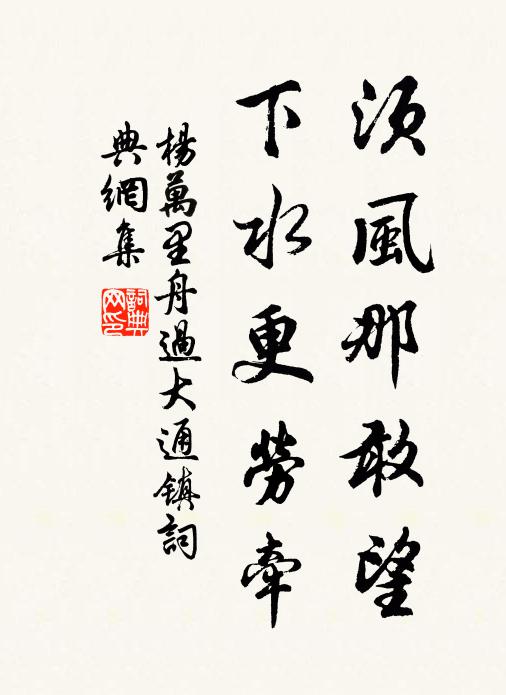 須風那敢望
下水更勞牽
楊萬里舟過大通鎮詞
典網集
詞典
网印